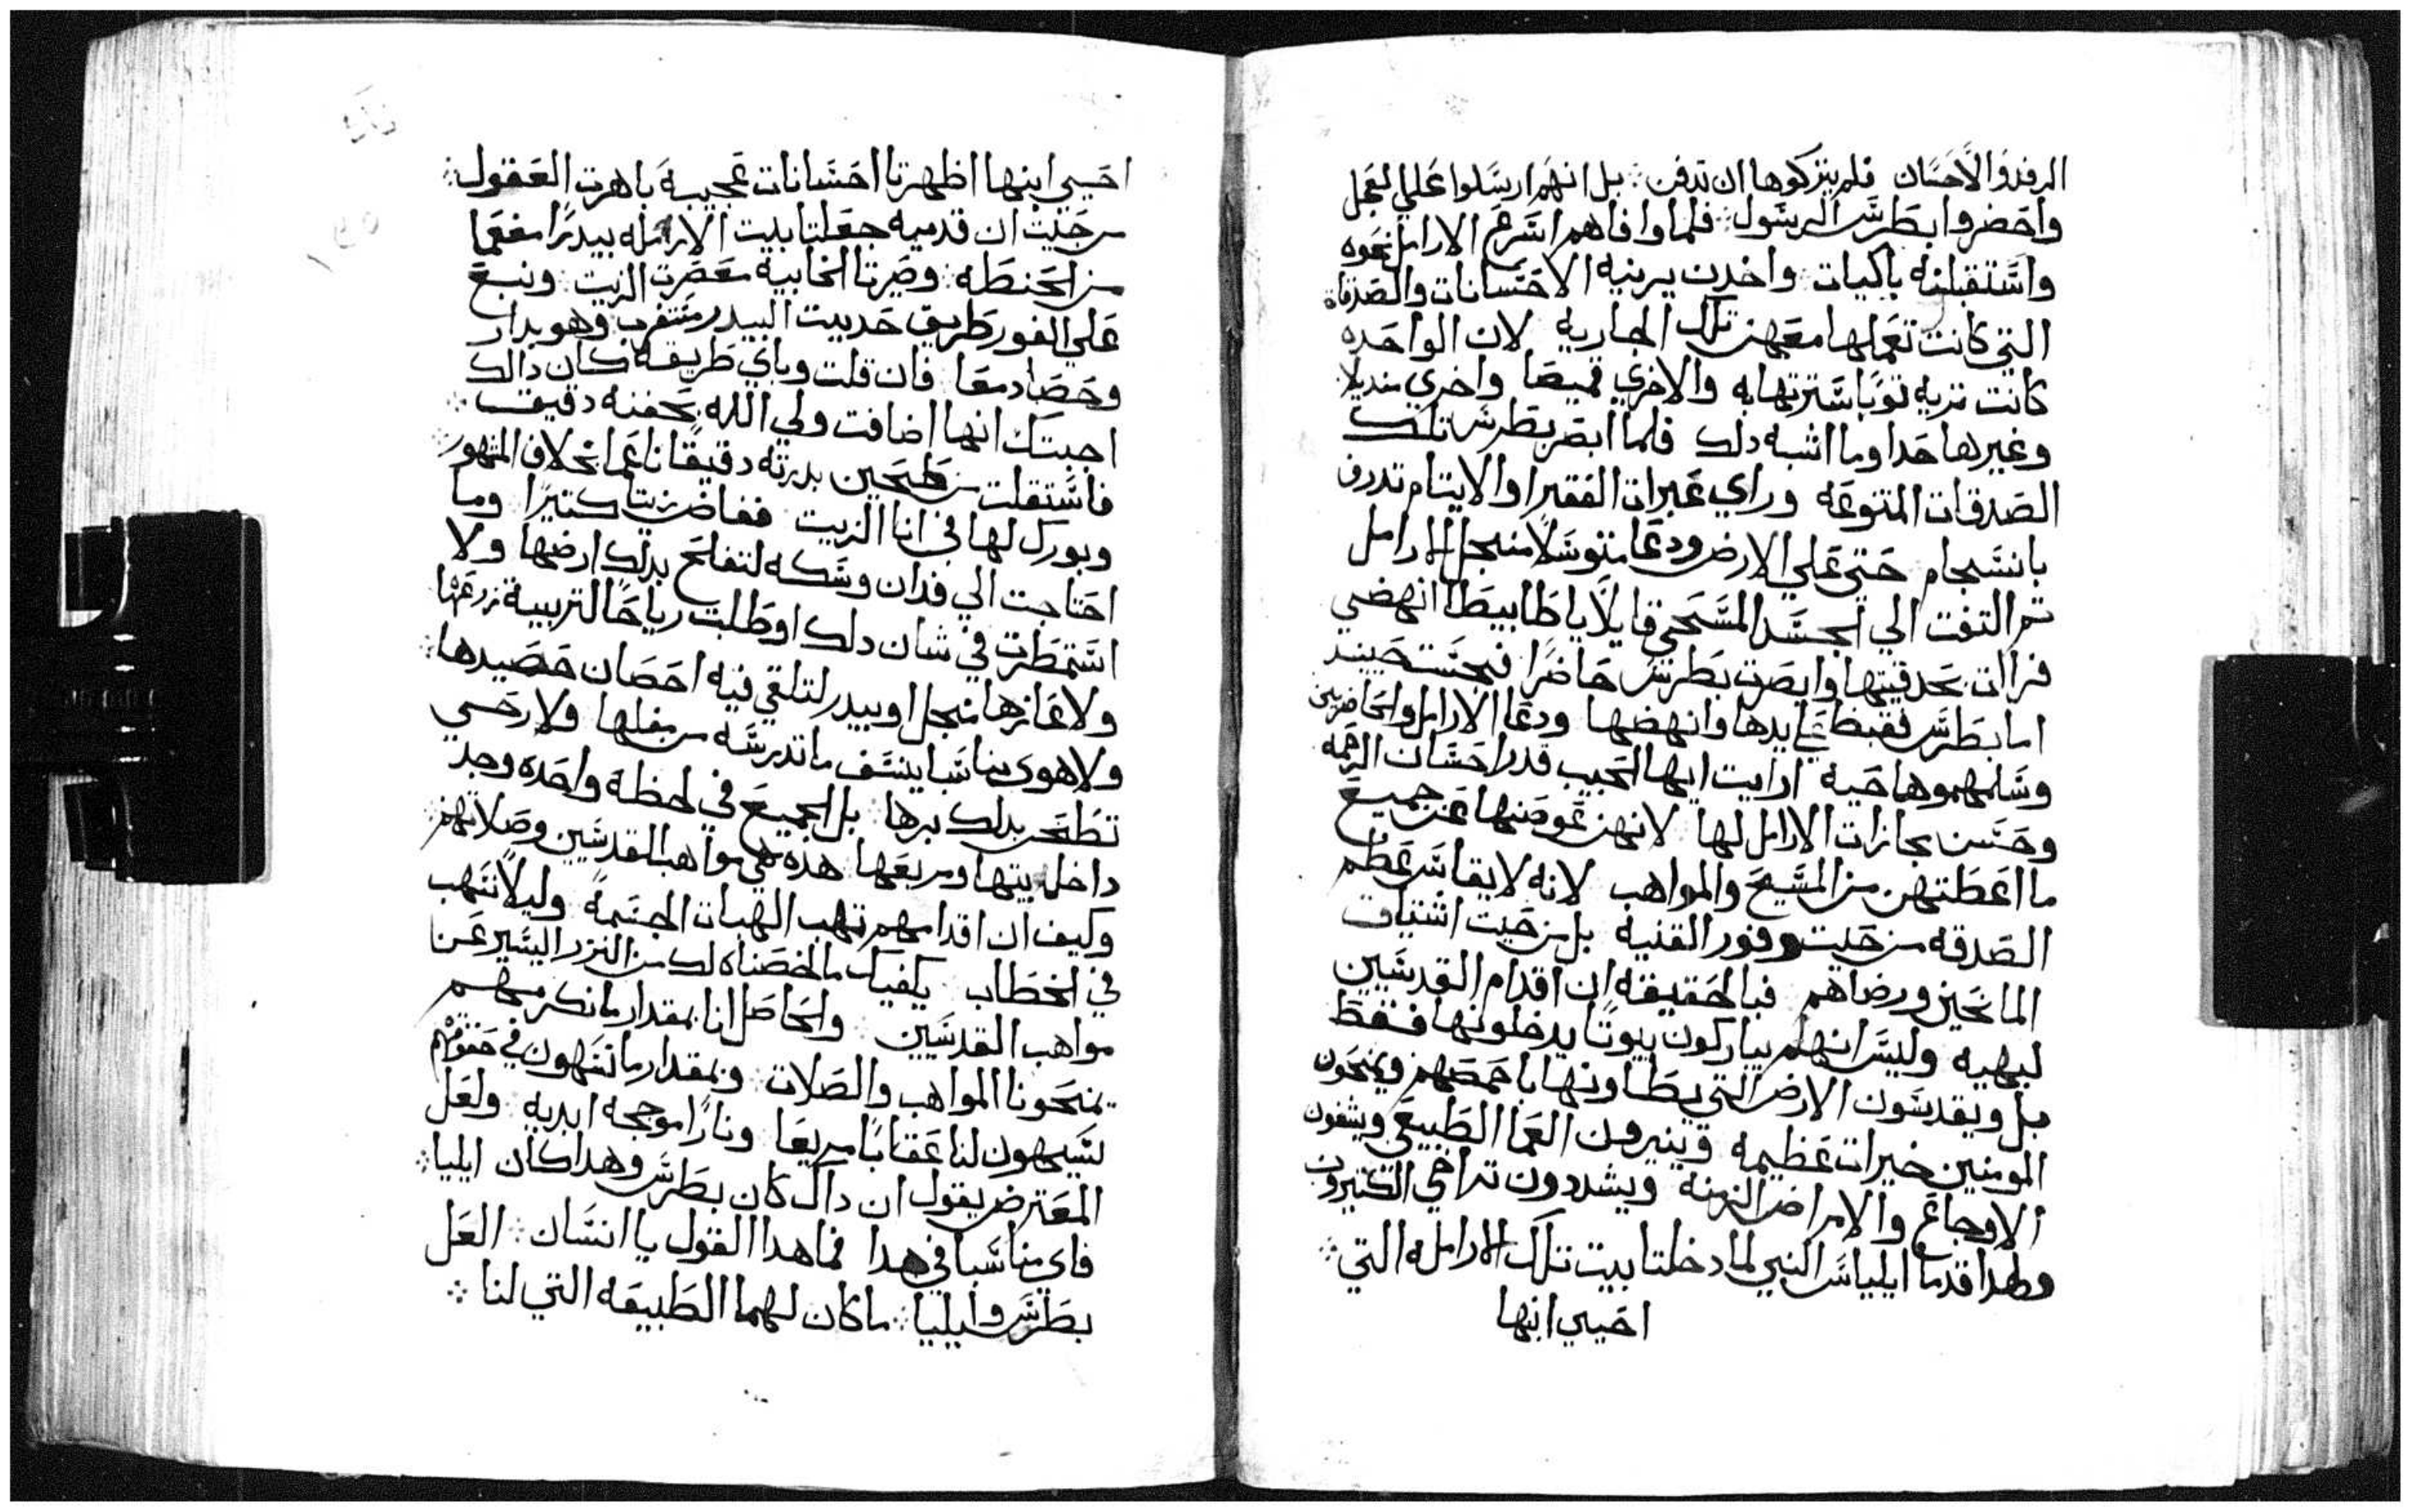 الرفد والاحسان فلم يتركوها ان تدفن ∴ بل انهم ارسلوا علي العجل
واحضروا بطرس الرسول ∴ فلما وافاهم اسرع الارامل نحوه
واستقبلنه باكيات واخدن يرينه الاحسانات والصدقاة
التي كانت تعملها معهن تلك الجاريه لان الواحده
كانت تريه توبا سترتها به والاخري قميصا واخري منديلا
وغيرها حدا وما اشبه دلك فلما ابصر بطرس تلك
الصدقات المتنوعه وراي عبرات الفقرا والايتام تدرف
بانسجام حتي علي الارض ودعا متوسلا من اجل الارامل
تم التفت الي الجسد المسجي قايلا ياطابيطا انهضي
فزالت بحدقيتها وابصرت بطرس حاضرا فجست حينيد
اما بطرس فقبط علي يدها وانهضها ودعا الارامل والحاضرين
وسلمهموها حيه ارايت ايها الحبيب قدر احسان الرحمه
وحسن مجازات الارامل لها لانهن عوضنها عن جميع
ما اعطتهن من المسيح والمواهب لانه لايقاس عظم
الصدقه من حيت وفور القنيه بل من حيت اشتياق
المانحين ورضاهم فبالحقيقه ان اقدام القديسين
لبهيه وليس انهم يباركون بيوتا يدخلونها فقط
بل ويقدسون الارض التي يطاونها باخمصهم ويمنحون
المومنين خيرات عظيمه وينيرون العما الطبيعي ويشفون
الاوجاع والامراض المزمنه ويشددون تراخي الكتيرون
وهدا قدما ايلياس النبي لما دخلتا بيت تلك الارامله التي ∴
احيي ابنها
احيي ابنها اظهرتا احسانات عجيبه باهرت العقول ∴
من حيت ان قدميه جعلتا بيت الارمله بيدرا مفعما
من الحنطه ∴ وصيرتا الخابية معصرت الزيت ∴ ونبع
علي الفور طريق حديت البيدر مستغرب وهو بدار
وحصاد معا فان قلت وباي طريقه كان دالك
اجبتك انها اضافت ولي الله بحفنه دقيق ∴
فاستقلت من طحين بدرته دقيقا ناعما بخلاف المشهور ∴
وبورك لها في انا الزيت ففاض زيتا كتيرا وما
احتاجت الي فدان وسكه لتفلح بدلك ارضها ولا
استمطرت في شان دلك اوطلبت رياحا لتربية زرعها
ولا عازها منجل اوبيدر لتلقي فيه احصان حصيدها ∴
ولا هوي مناسبا ينسف ما تدرسه من بغلها ولا رحي
تطحن بدلك برها بل الجميع في لحظة واحده وجد
داخل بيتها ومربعها هده هي مواهب القديسين وصلاتهم ∴
وكيف ان اقدامهم تهب الهبات الجسمه وليلا نسهب
في الخطاب يكفيك ما لخصناه لك من النزر اليسير عن
مواهب القديسين والحاصل انا بمقدار ما نكرمهم
يمنحونا المواهب والصلات ∴ وبمقدار ما نسهون في حقوقهم
يسهون لنا عقابا مريعا ونارا موججه ابديه ولعل
المعترض يقول ان داك كان بطرس وهدا كان ايليا ∴
فاي مناسبا في هدا فما هدا القول يا انسان ∴ العل
بطرس وايليا ∴ ماكان لهما الطبيعه التي لنا ∴